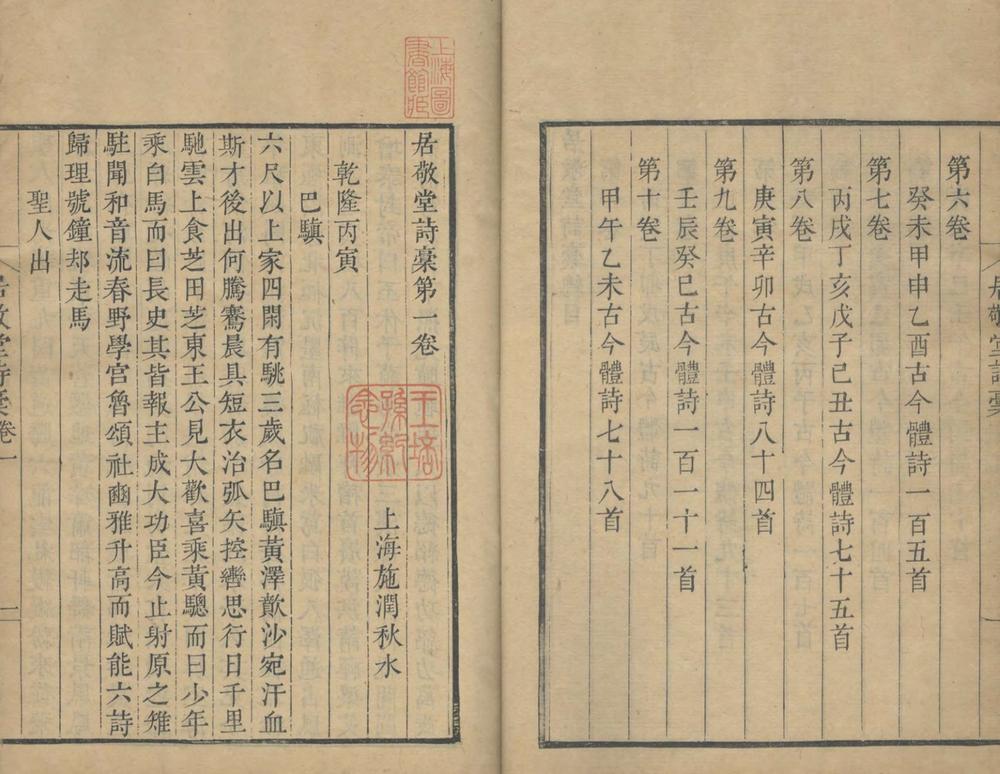 第六卷
癸未甲申乙酉古今體詩一百五首
第七卷
丙戌丁亥戊子己丑古今體詩七十五首
第八卷
庚寅辛卯古今體詩八十四首
第九卷
壬辰癸巳古今體詩一百一十一首
第十卷
甲午乙未古今體詩七十八首
上海圖書館藏
居敬堂詩稾第一卷
上海施潤秋水
王培孫紀念物
乾隆丙寅
巴驥
六尺以上家四閑有駣三歲名巴驥黃澤歕沙宛汗血
斯才後出何騰騫晨具短衣治弧矢控轡思行日千里
馳雲上食芝田芝東王公見大歡喜乘黃驄而曰少年
乘白馬而曰長史其皆報主成大功臣今止射原之雉
駐聞和音流春野學宮魯頌社豳雅升高而賦能六詩
歸理號鐘却走馬
聖人出
居敬堂詩稾卷一
一